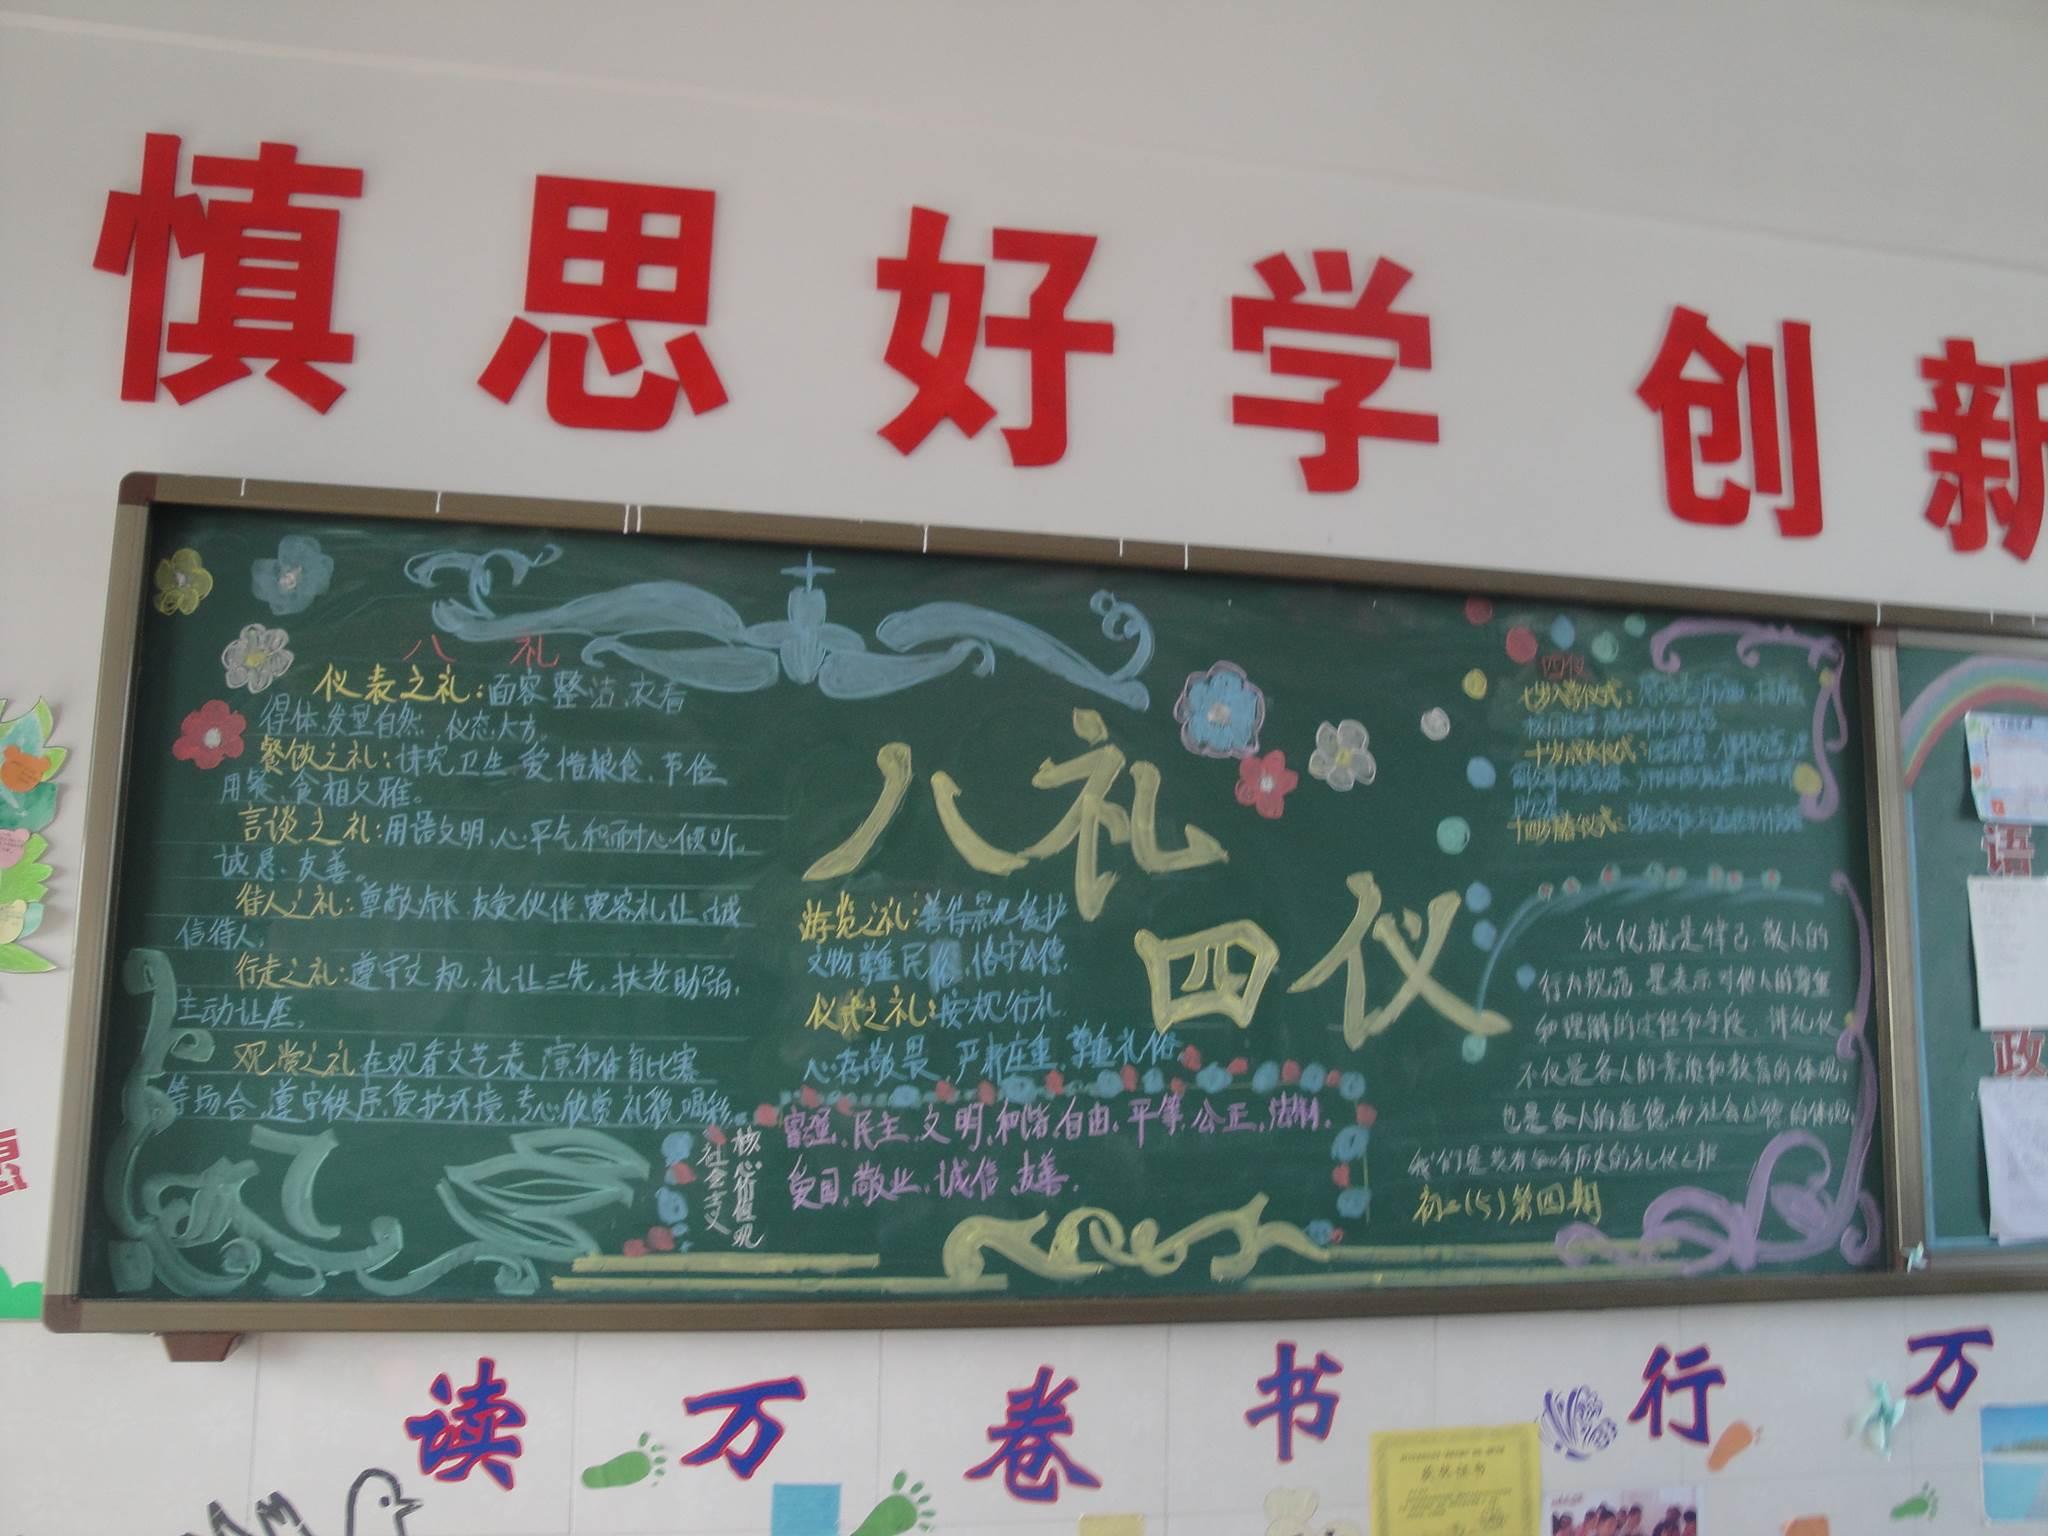 慎思好学 创新
八 礼
仪表之礼：面容整洁、衣着
得体、发型自然、仪态大方。
餐饮之礼：讲究卫生、爱惜粮食、节俭
用餐、食相文雅。
言谈之礼：用语文明、心平气和、耐心倾听、
诚恳、友善。
待人之礼：尊敬师长、友爱伙伴、宽容礼让、诚
信待人。
行走之礼：遵守交规、礼让三先、扶老助弱、
主动让座。
观赏之礼 在观看文艺表演和体育比赛
等场合、遵守秩序、爱护环境、专心欣赏、礼貌喝彩。
八礼
四仪
游览之礼：善待景观、爱护
文物、尊重民俗、恪守公德。
仪式之礼：按规行礼、
心存敬畏、严肃庄重、尊重礼俗。
社会主义
核心价值观
富强、民主、文明、和谐、自由、平等、公正、法制、
爱国、敬业、诚信、友善.
四仪
七岁入学仪式：
十岁成长仪式：
十四岁 仪式：
礼仪就是律己、敬人的
行为规范，是表示对他人的尊重
和理解的过程和手段，讲礼仪
不仅是各人的素质和教育的体现，
也是各人的道德和社会公德的体现，
我们是
初二(5)第四期
语
政
读万卷书 行万
获奖证书